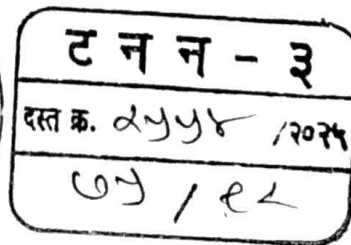 ट न न - ३
दस्त क्र. २५५४ /२०२५
७५ / ९८